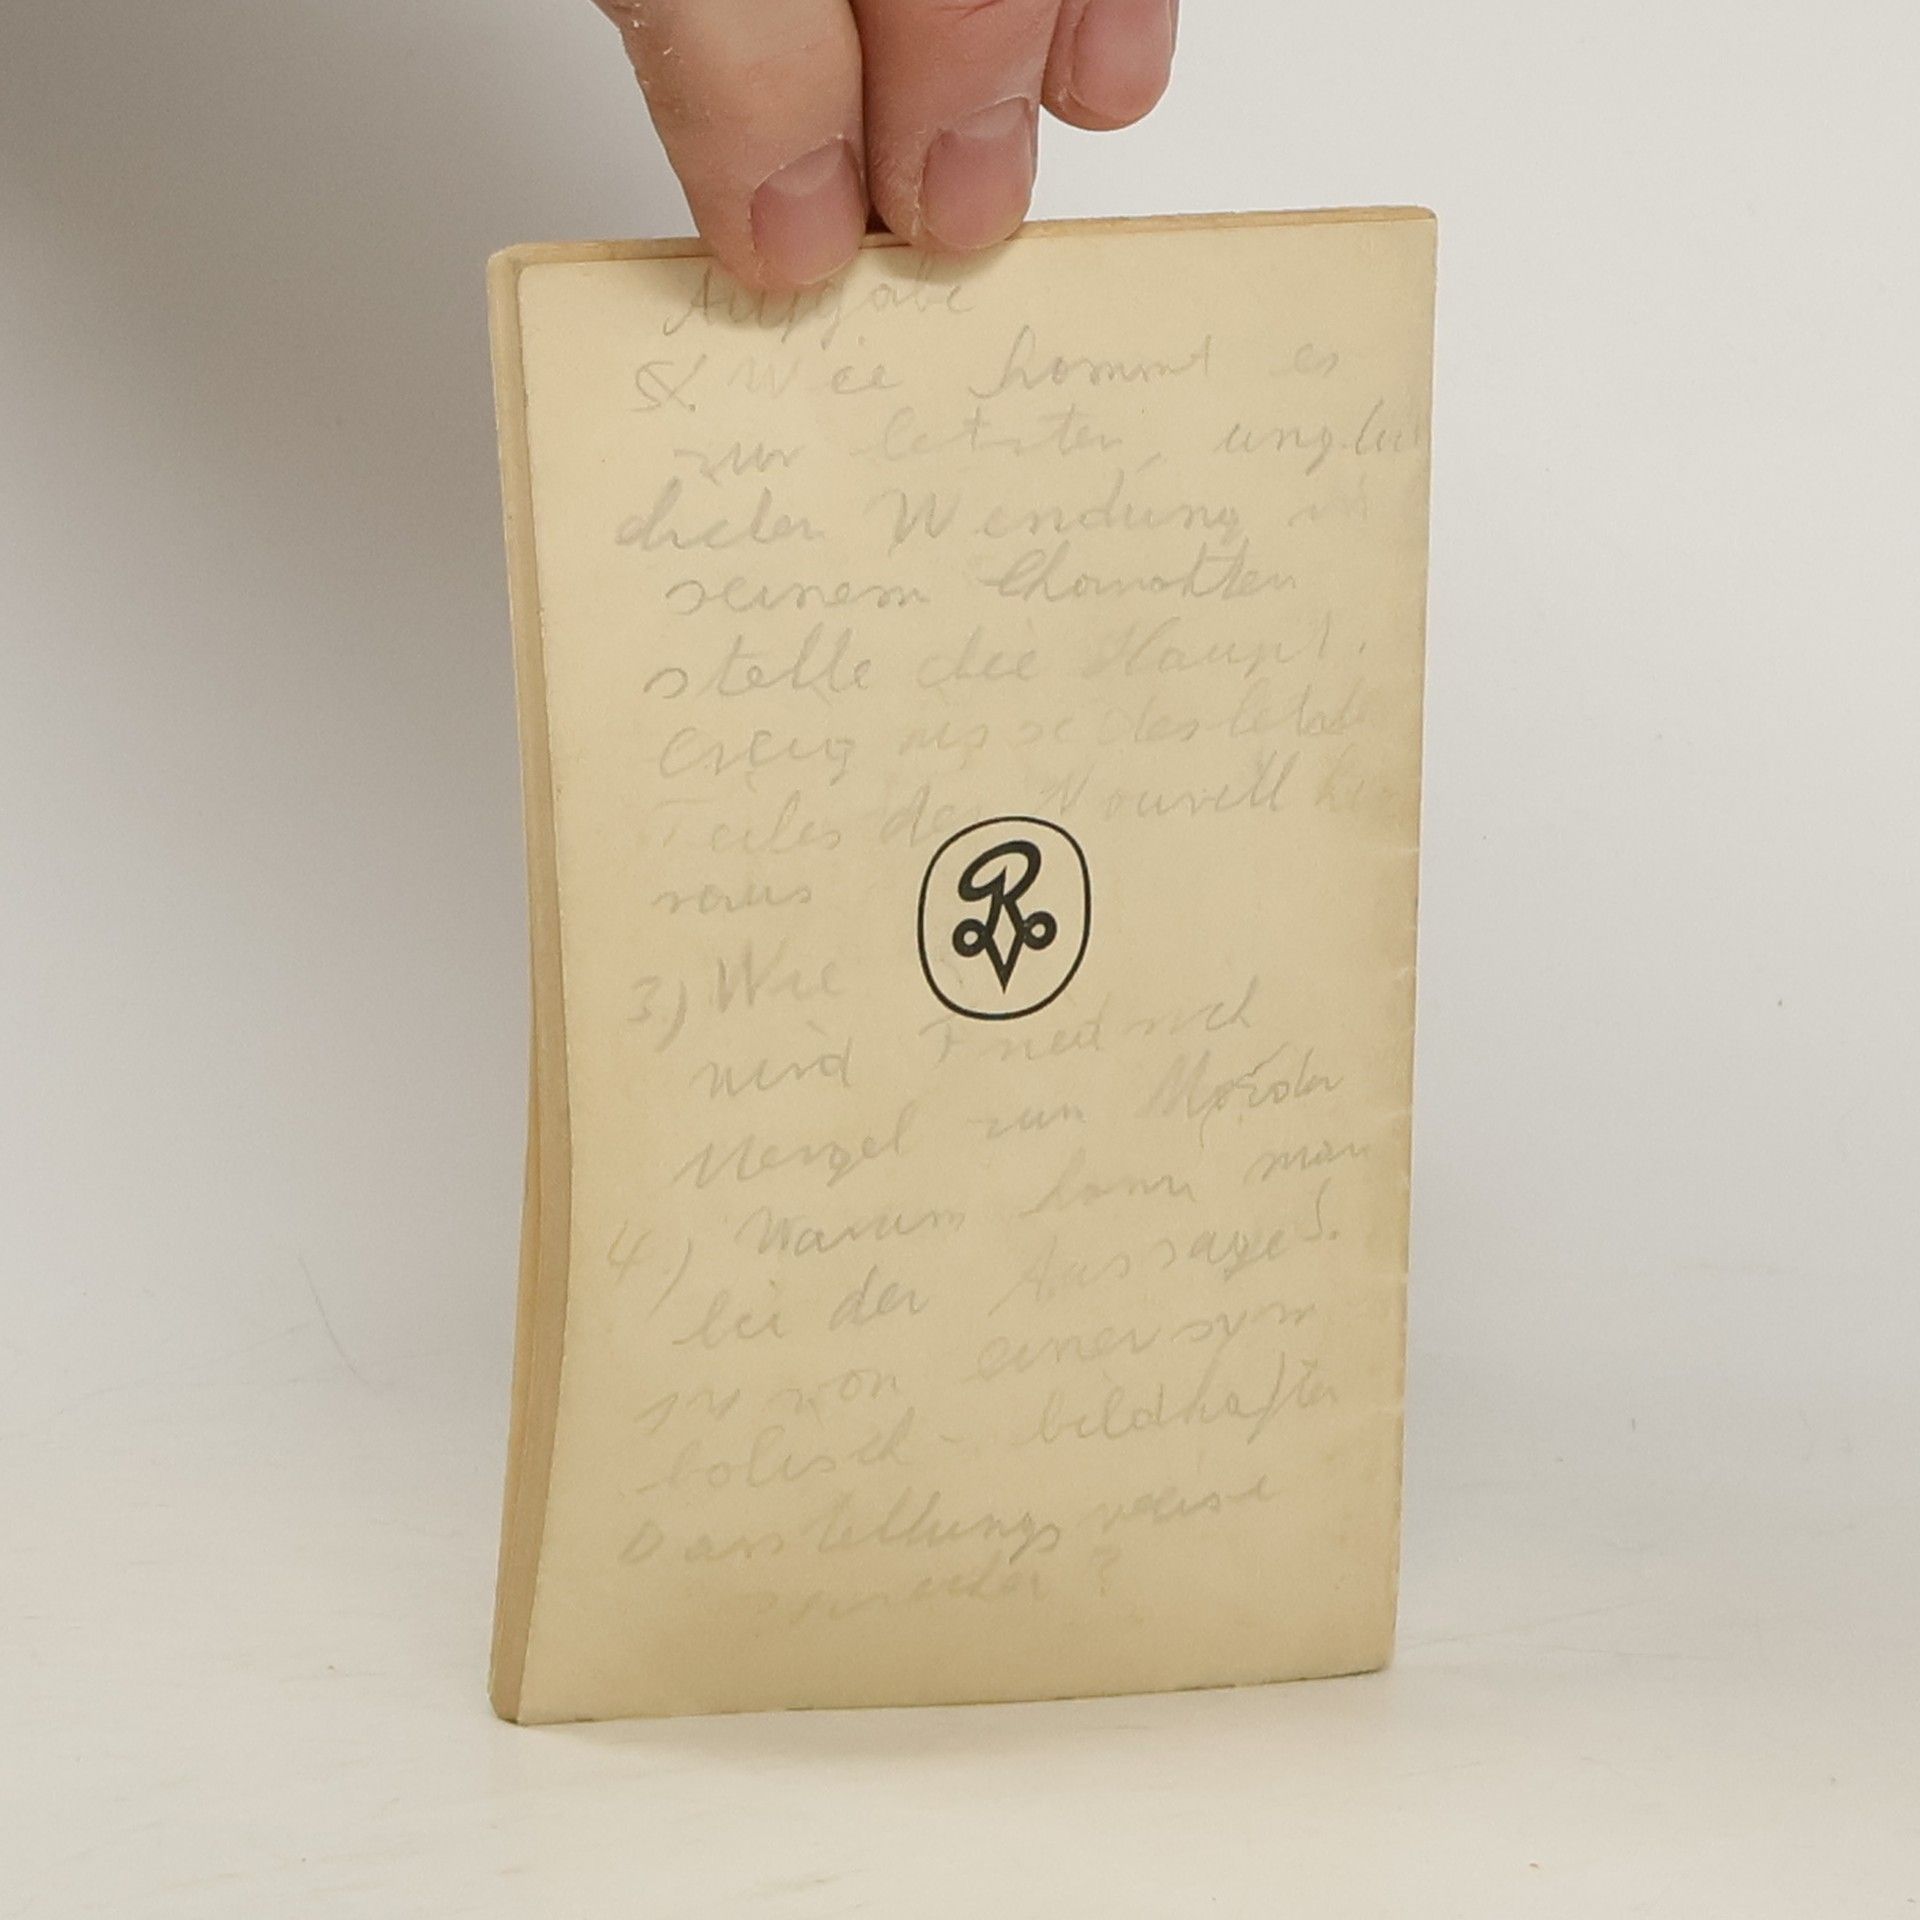 Aufgabe
Wie kommt es
zur letzten, unglü
Wendung in
seinem Charakter
stelle die Haupt.
ereignisse des letzte
Teiles der Nouvell he
raus
3.) Wie
wird Friedrich
Mergel zum Mörder
4.) Warum kann man
bei der Aussage S.
von einer sym
bolisch - bildhaften
Darstellungsweise
sprechen ?
R